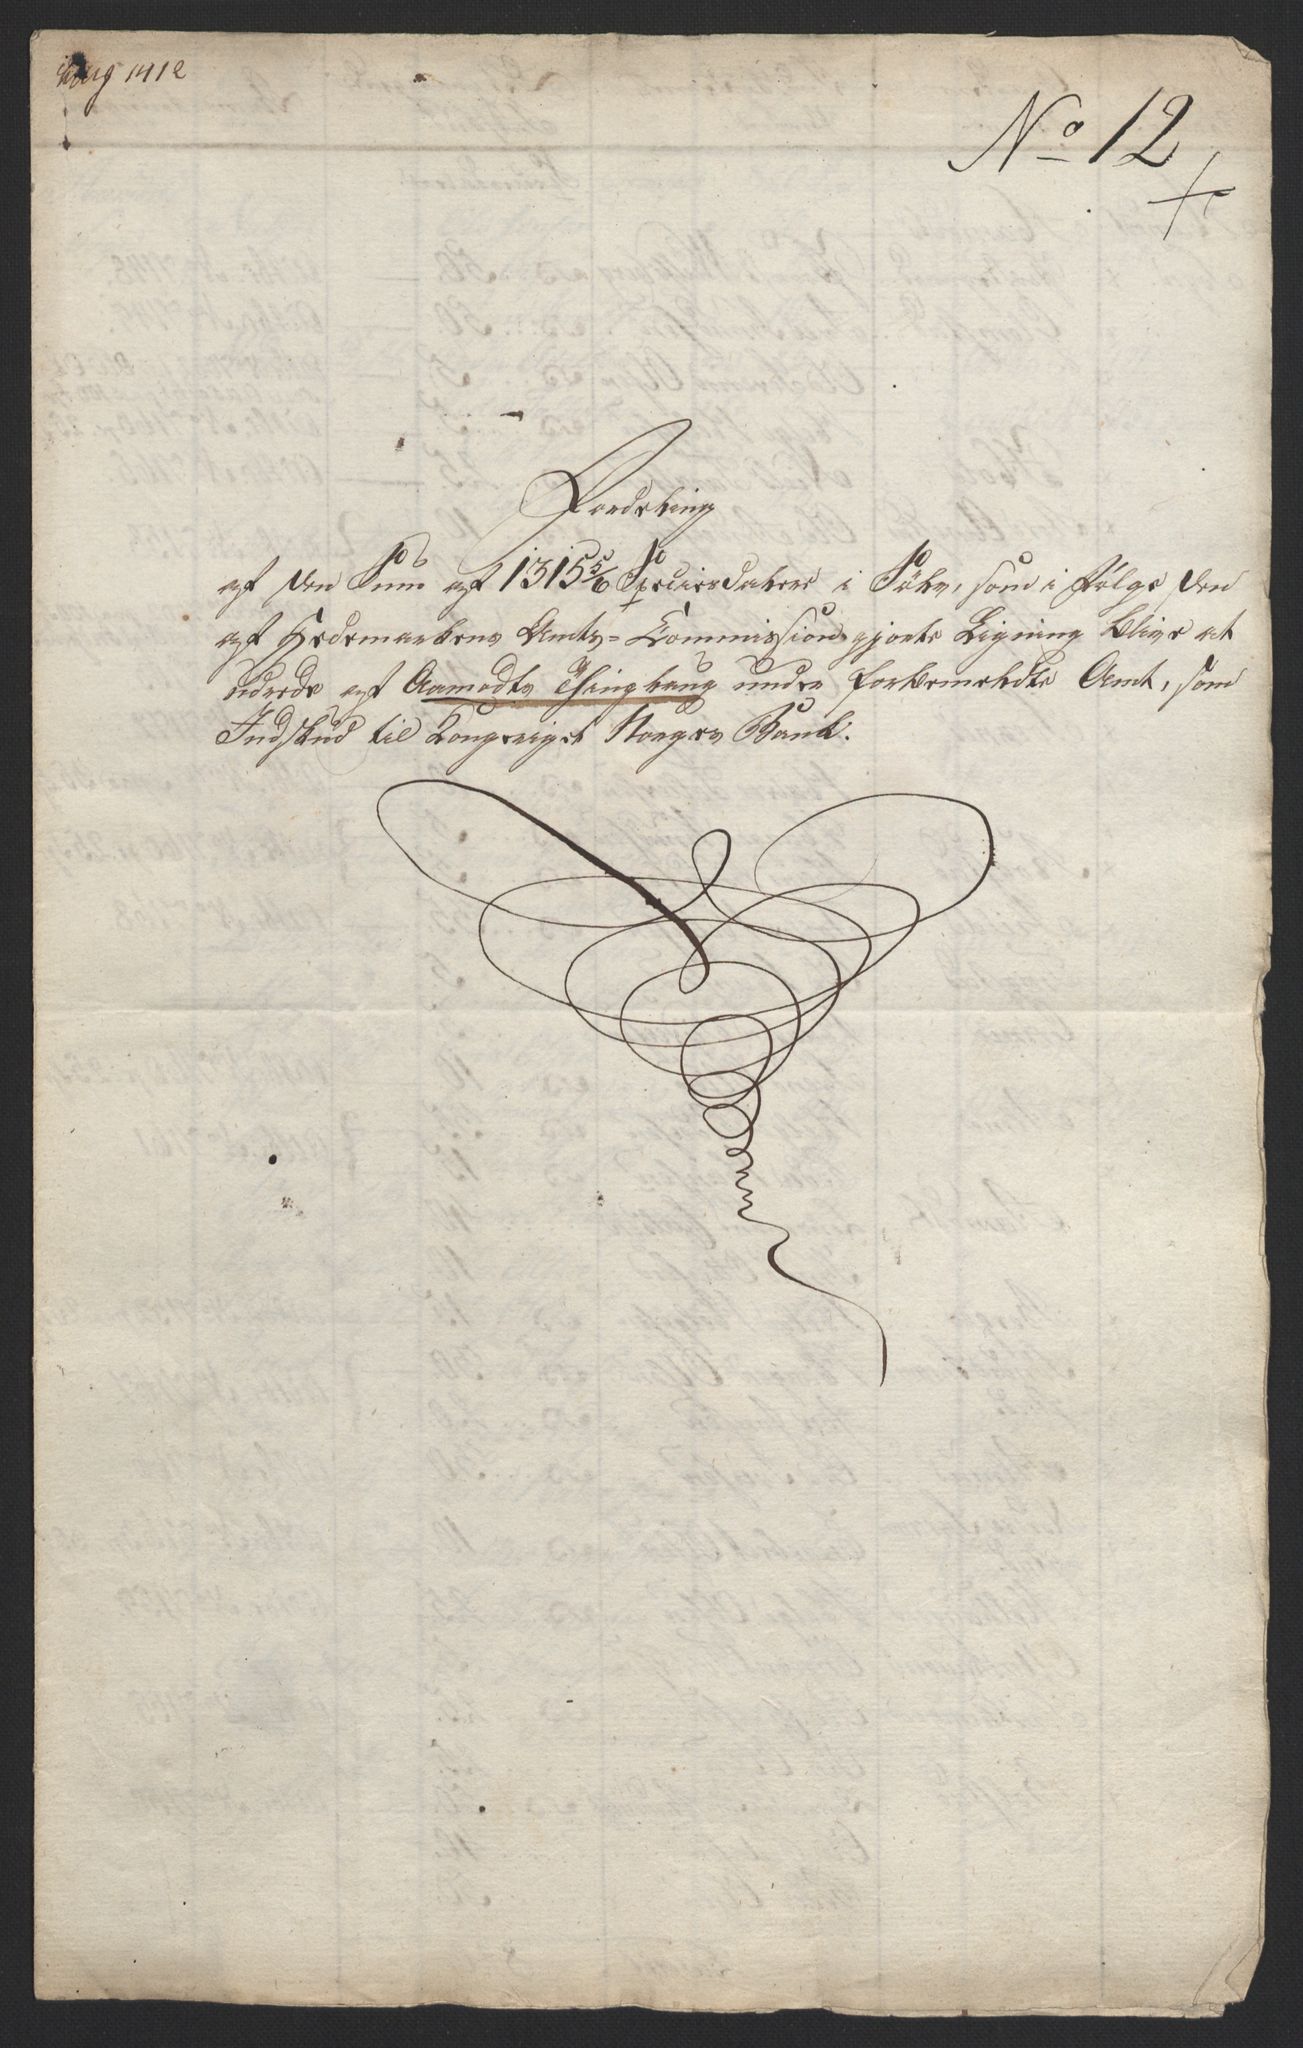 No 12
Fordeling
af den Sum af 1315 5/6 Speciesdalere i Sölv, som i Fölge den
af Hedemarkens Amts-Commission gjorte Ligning blive at
udrede af Aamodts Thinglaug under forbemeldte Amt, som
Indskud til Kongeriget Norges Bank.